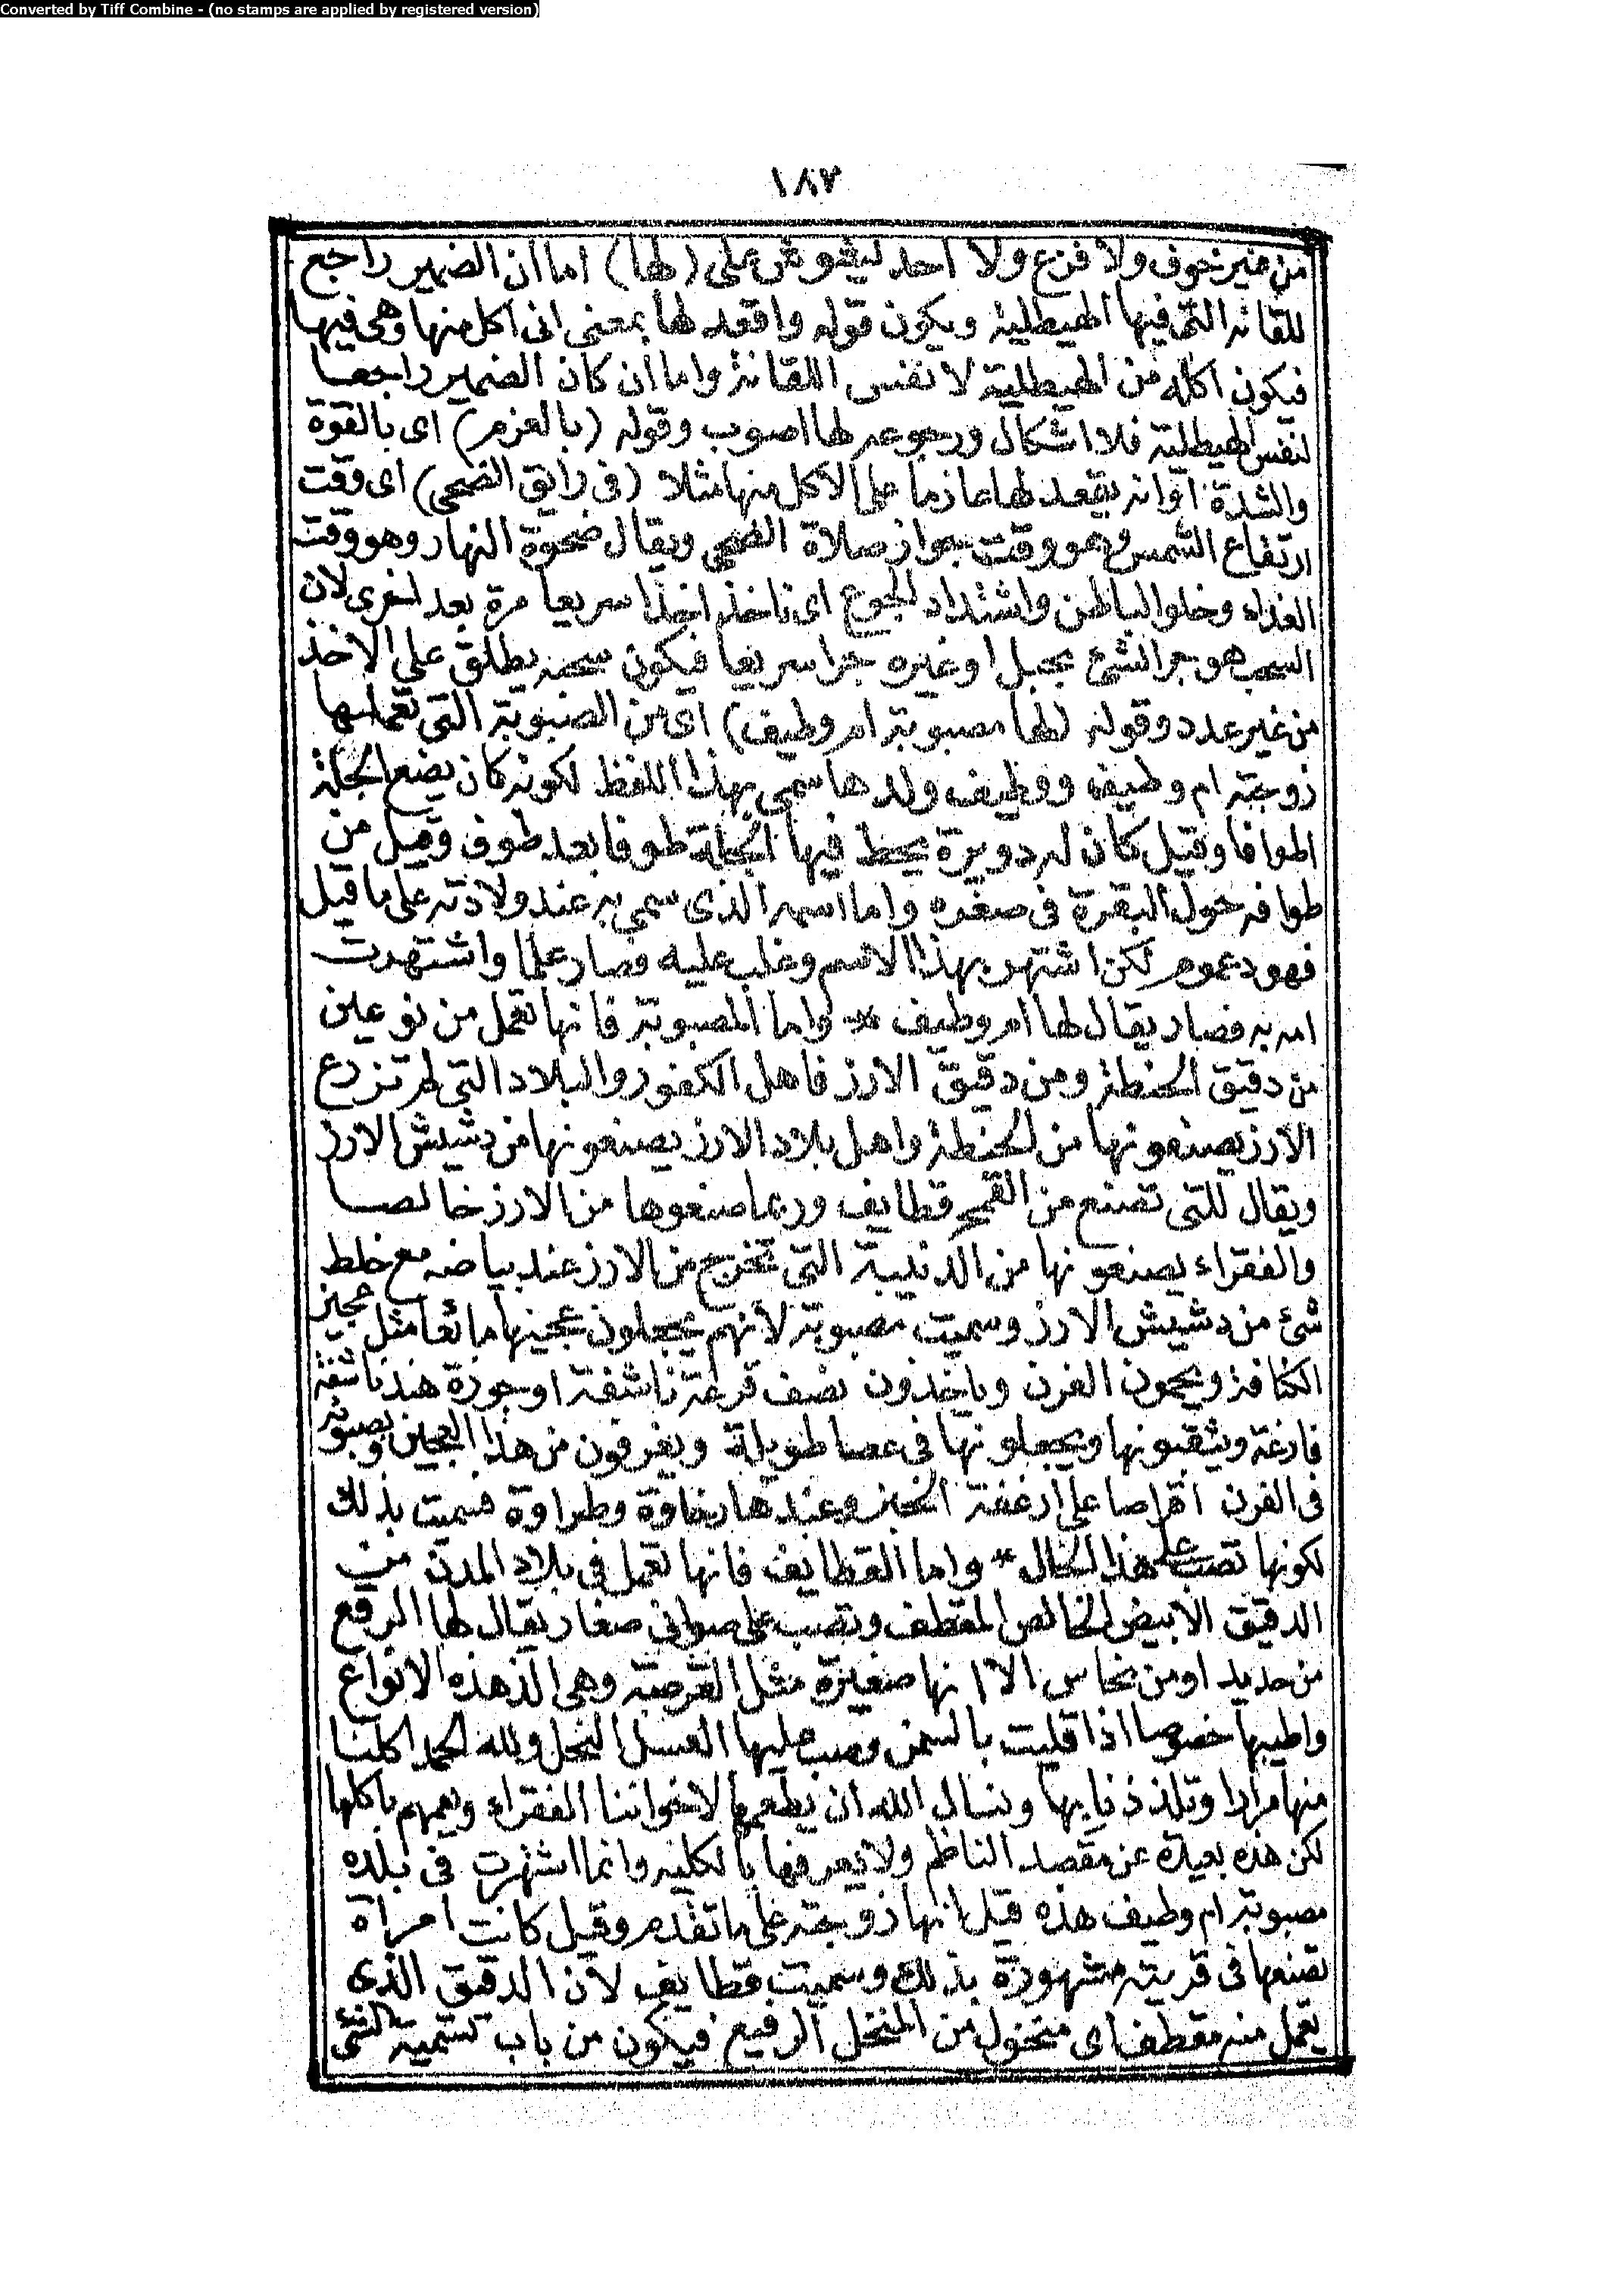 Converted by Tiff Combine - (no stamps are applied by registered version)
١٨٧
من غير خوف ولا فزع ولا احد ليشوش على (لها) اما ان الضمير راجع
للقانه التى فيها الهيطلية ويكون قوله واقعد لها بمعنى انى اكل منها وهى فيها
فيكون اكله من الهيطلية لا نفس اللقانة واما ان كان الضمير راجعا
لنفس الهيطلية فلا اشكال ورجوعه لها اصوب وقوله (بالعزم) اى بالقوة
والشدة او انه يقعد لها عازما على الاكل منها مثلا (فى رايق الضحى) اى وقت
ارتفاع الشمس وهو وقت جواز صلاة الضحى ويقال ضحوة النهار وهو وقت
الغداء وخلو الباطن واشتداد الجوع اى ناخذ اخذا سريعا مرة بعد اخرى لان
السحب هو جر الشئ بحبل او غيره جرا سريعا فيكون سحبه يطلق على الاخذ
من غير عدد وقوله (لها مصبوبة ام وطيف) اى من الصبوبة التى تعملها
زوجته ام وطيف ووطيف ولدها سمى بهذا اللفظ لكونه كان يضع الجلة
اطوافا وقيل كان له دويرة يحط فيها الجلة طوفا بعد طوف وقيل من
طوافه حول البقرة فى صغره واما اسمه الذى سمى به عند ولادته على ما قيل
فهو دعموم لكن اشتهر بهذا الاسم وغلب عليه وصار علما واشتهرت
امه به فصار يقال لها ام وطيف * واما المصبوبة فانها تعمل من نوعين
من دقيق الحنطة ومن دقيق الارز فاهل الكفور والبلاد التى لم تزرع
الارز يصنعونها من الحنطة واهل بلاد الارز يصنعونها من دشيش الارز
ويقال للتى تصنع من القمح قطايف وربما صنعوها من الارز خالصا
والفقراء يصنعونها من الدنيبة التى تخرج من الارز عند بياضه مع خلط
شئ من دشيش الارز وسميت مصبوبة لانهم يجعلون عجينها مائعا مثل عجين
الكنافة ويحمون الفرن وياخذون نصف قرعة ناشفة او جوزة هند ناشفة
فارغة ويثقبونها ويجعلونها فى عصا طويلة ويغرفون من هذا العجين ويصبونه
فى الفرن اقراصا على ارغفة الخبز وعندها رخاوة وطراوة فسميت بذلك
لكونها تصب على هذا الحال * واما القطايف فانها تعمل فى بلاد المدن من
الدقيق الابيض الخالص المقطف وتصب على صوانى صغار يقال لها الرقع
من حديد او من نحاس الا انها صغيرة مثل القرصة وهى الذ هذه الانواع
واطيبها خصوصا اذا قليت بالسمن وصب عليها العسل النحل ولله الحمد اكلنا
منها مرارا وتلذذنا بها ونسال الله ان يطعمها لاخواننا الفقراء ويعمهم باكلها
لكن هذه بعيدة عن مقصد الناظم ولا يعرفها بالكلية وانما اشتهرت فى بلده
مصبوبة ام وطيف هذه قيل انها زوجته على ما تقدم وقيل كانت امراة
تصنعها فى قريته مشهورة بذلك وسميت قطايف لان الدقيق الذى
يعمل منه مقطف اى منخول من المنخل الرفيع فيكون من باب تسمية الشئ